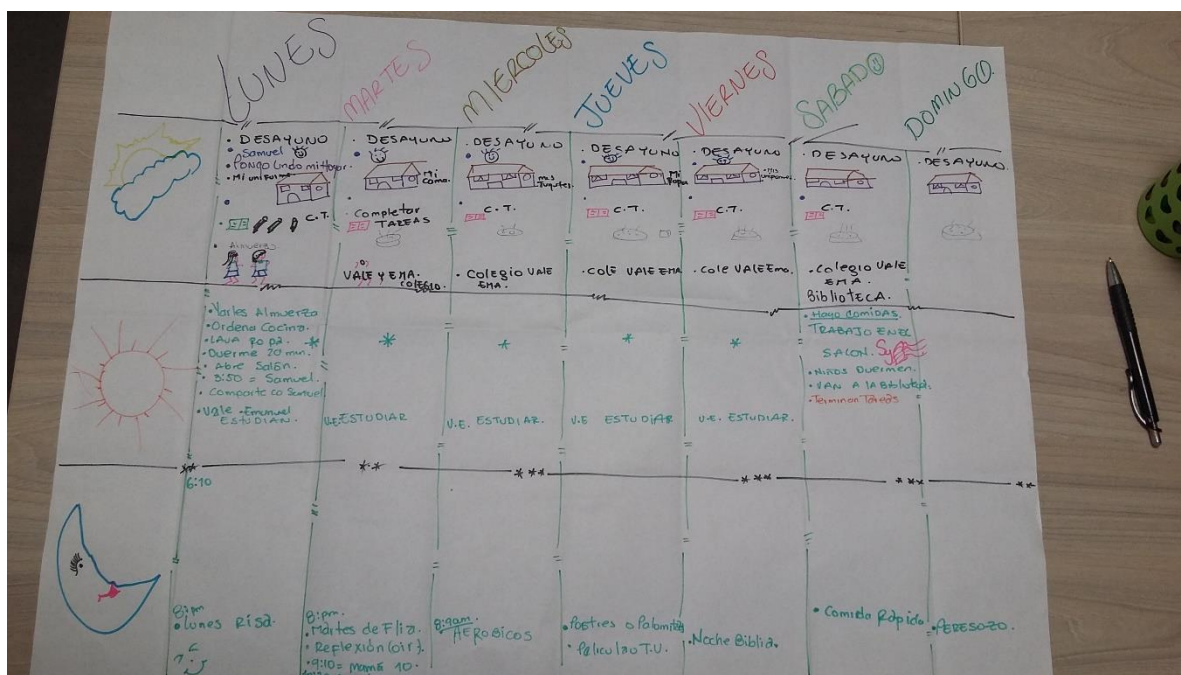 LUNES MARTES MIERCOLES JUEVES VIERNES SABADO DOMINGO.
• DESAYUNO
• Samuel
• Pongo lindo mi Hogar.
• Mi uniforme
C.T.
• Almuerzo
• DESAYUNO
Mi
Cama.
• Completar
TAREAS
VALE Y EMA.
COLEGIO.
• DESAYUNO
mis
Juguetes.
C.T.
• Colegio VALE
EMA.
• DESAYUNO
Mi
Ropa
C.T.
• COLE VALE EMA
• DESAYUNO
C.T.
• Cole VALE Ema.
• DESAYUNO
C.T.
• Colegio VALE
EMA.
BiblioTECA.
• DESAYUNO.
Almuerza
• Ordena Cocina.
• LAVA Ropa.
• Duerme 20 min.
• Abre Salón.
• 3:50 = Samuel.
• Comparte co Samuel
• Vale - Emanuel
ESTUDIAN.
V.E. ESTUDIAR
V.E. ESTUDIAR.
V.E ESTUDIAR
V.E. ESTUDIAR.
• Hago comidas.
TRABAJO EN EL
SALON.
• Niños Duermen.
• VAN A la Biblioteca.
• Terminan Tareas
6:10
8:pm
• Lunes Risa.
8:pm.
• Martes de Flia.
• Reflexión (oir).
• 9:10 = Mamá 10.
AEROBICOS
• Postres o Palomitas
• Pelicula o T.V.
• Noche Biblia.
• Comida Rápida
• PERESOZO.